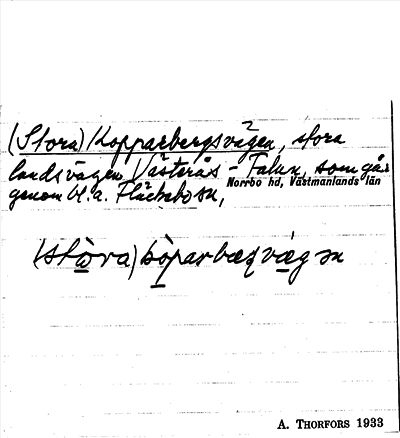 (Stora) Kopparbergsvägen, stora
landsvägen Västerås - Falun, som går
Norrbo hd, Västmanlands län
genom bl.a. Fläckebo sn,
(stòra) kòparbærjvægən
A. THORFORS 1933